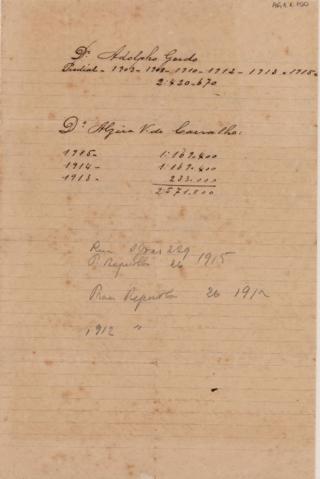 Dr Adolpho Gordo
Predial - 1909 - 1910 - 1912 - 1913 - 1915 -
2:420.670
Da Alzira V. de Carvalho:
1915 - 1:169.400
1914 - 1:169.400
1913 - 233.000
2:571.800
Rua 229
R. Republica 26 1915
Rua Republica 26 1912
1912 "